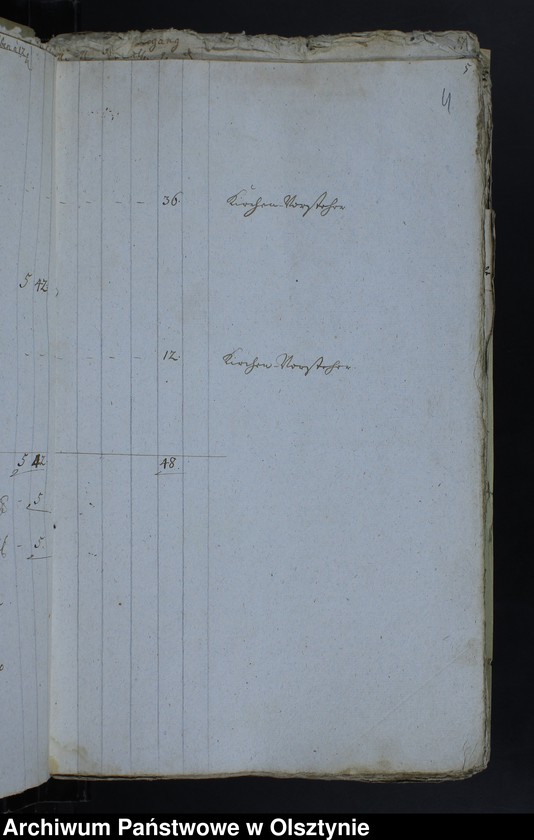 5
4
36.
Kirchen-Vorsteher
5 42
12.
Kirchen-Vorsteher
5 42
48.
5
5
Archiwum Państwowe w Olsztynie